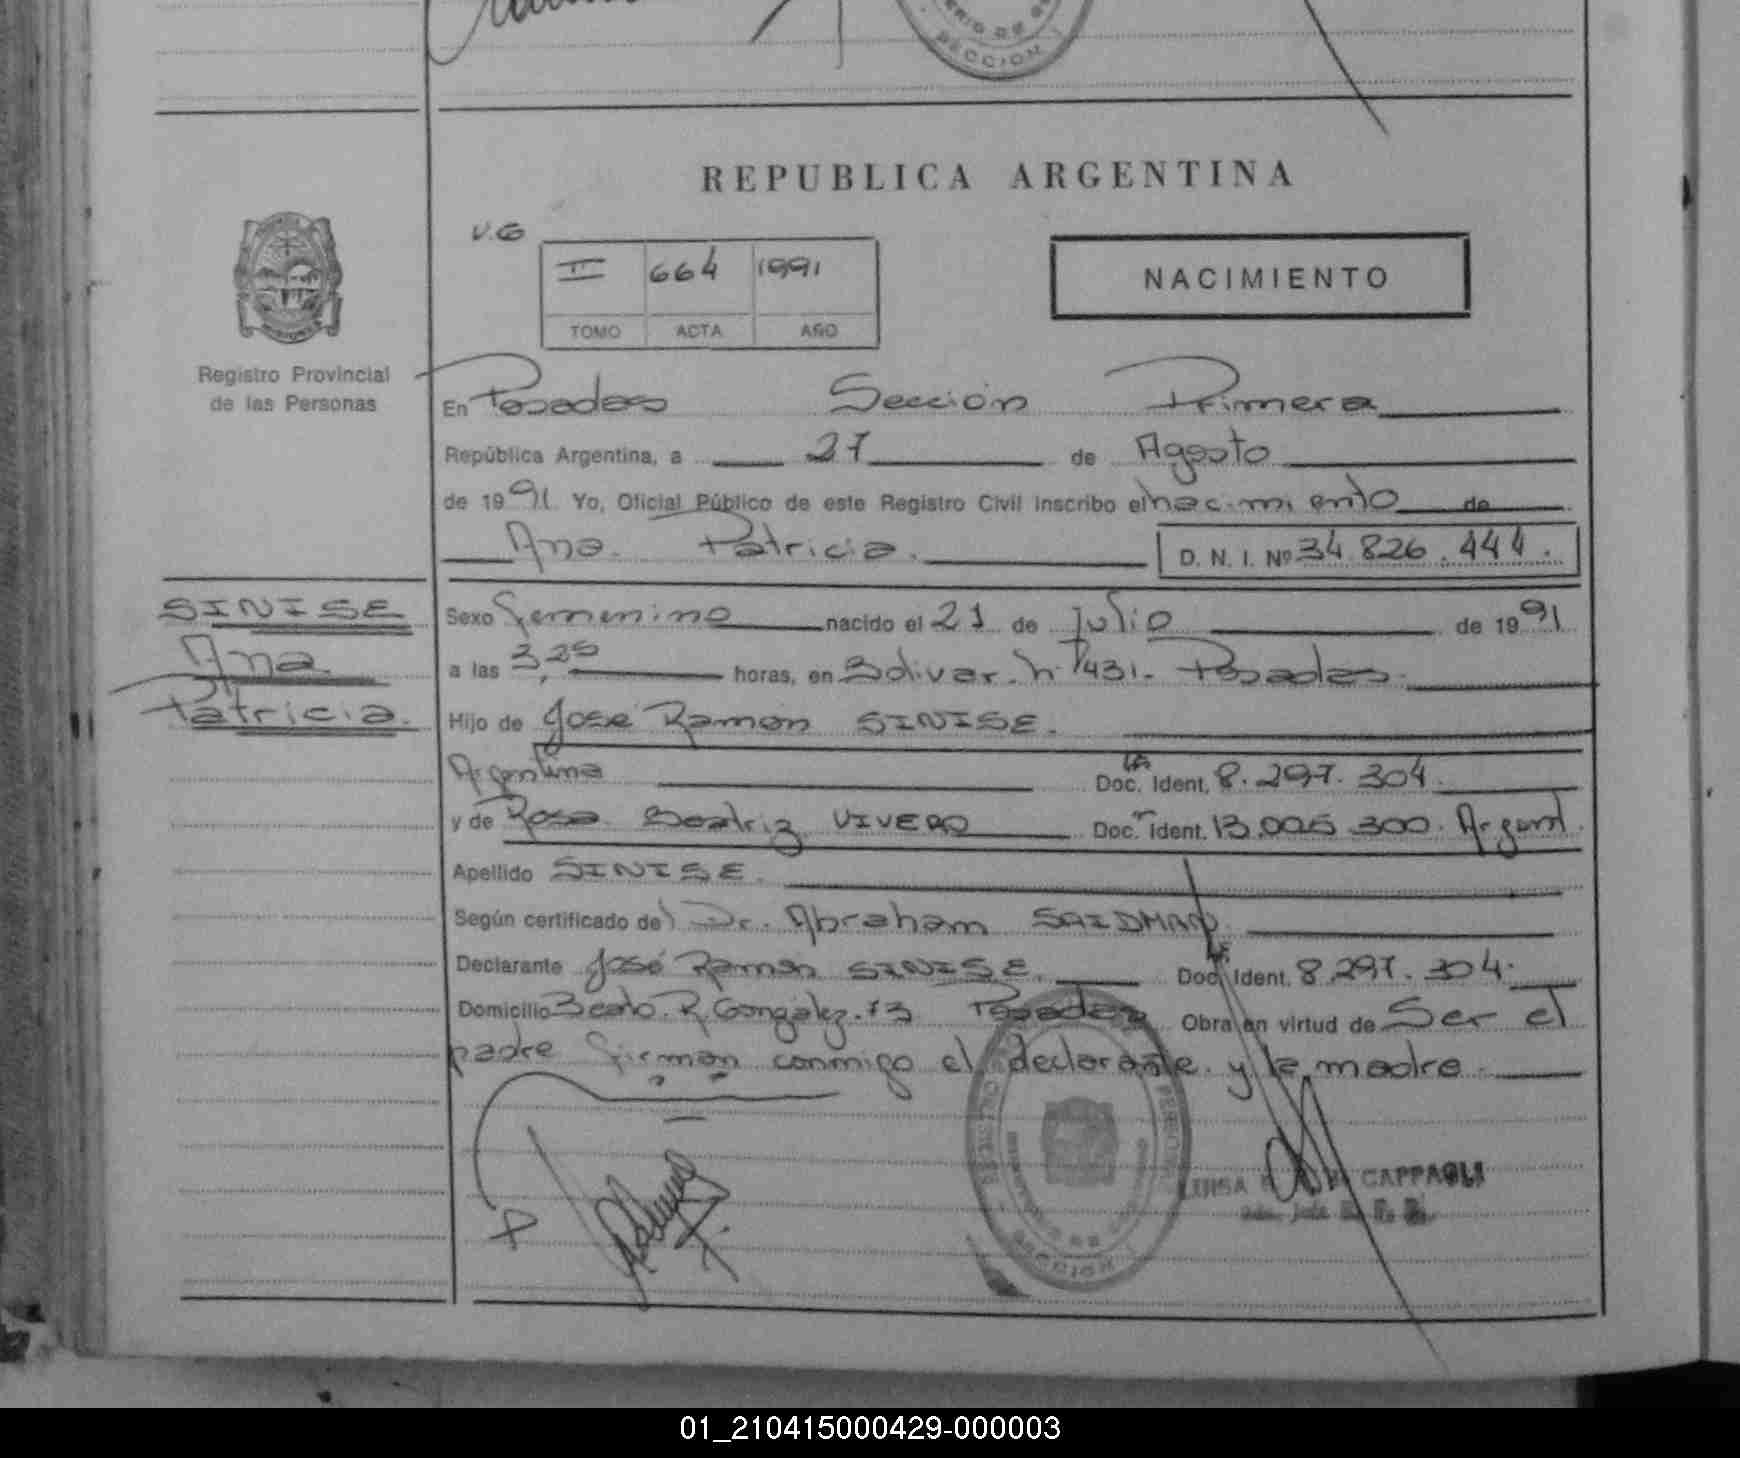 SECCION
REPUBLICA ARGENTINA
V.G
II 664 1991
TOMO ACTA AÑO
NACIMIENTO
Registro Provincial
de las Personas
En Posadas Sección Primera
República Argentina, a 27 de Agosto
de 1991. Yo, Oficial Público de este Registro Civil Inscribo el nacimiento de
Ana Patricia. D. N. I. Nº 34.826.444.
SINISE
Ana
Patricia.
Sexo femenino nacido el 21 de Julio de 1991
a las 3,25 horas, en Bolivar. Nº 1431- Posadas.
Hijo de José Ramón SINISE.
Argentina Doc. Ident. 8.297.304.
y de Rosa Beatriz VIVERO Doc. Ident. 13.005.300. Argent.
Apellido SINISE.
Según certificado del Dr. Abraham SAIDMAN
Declarante José Ramón SINISE. Doc. Ident. 8.297.304.
Domicilio Beato. R. González. 73 Posadas Obra en virtud de Ser el
padre firman conmigo el declarante. y la madre.
SECCION
LUISA CAPPAGLI
01_210415000429-000003